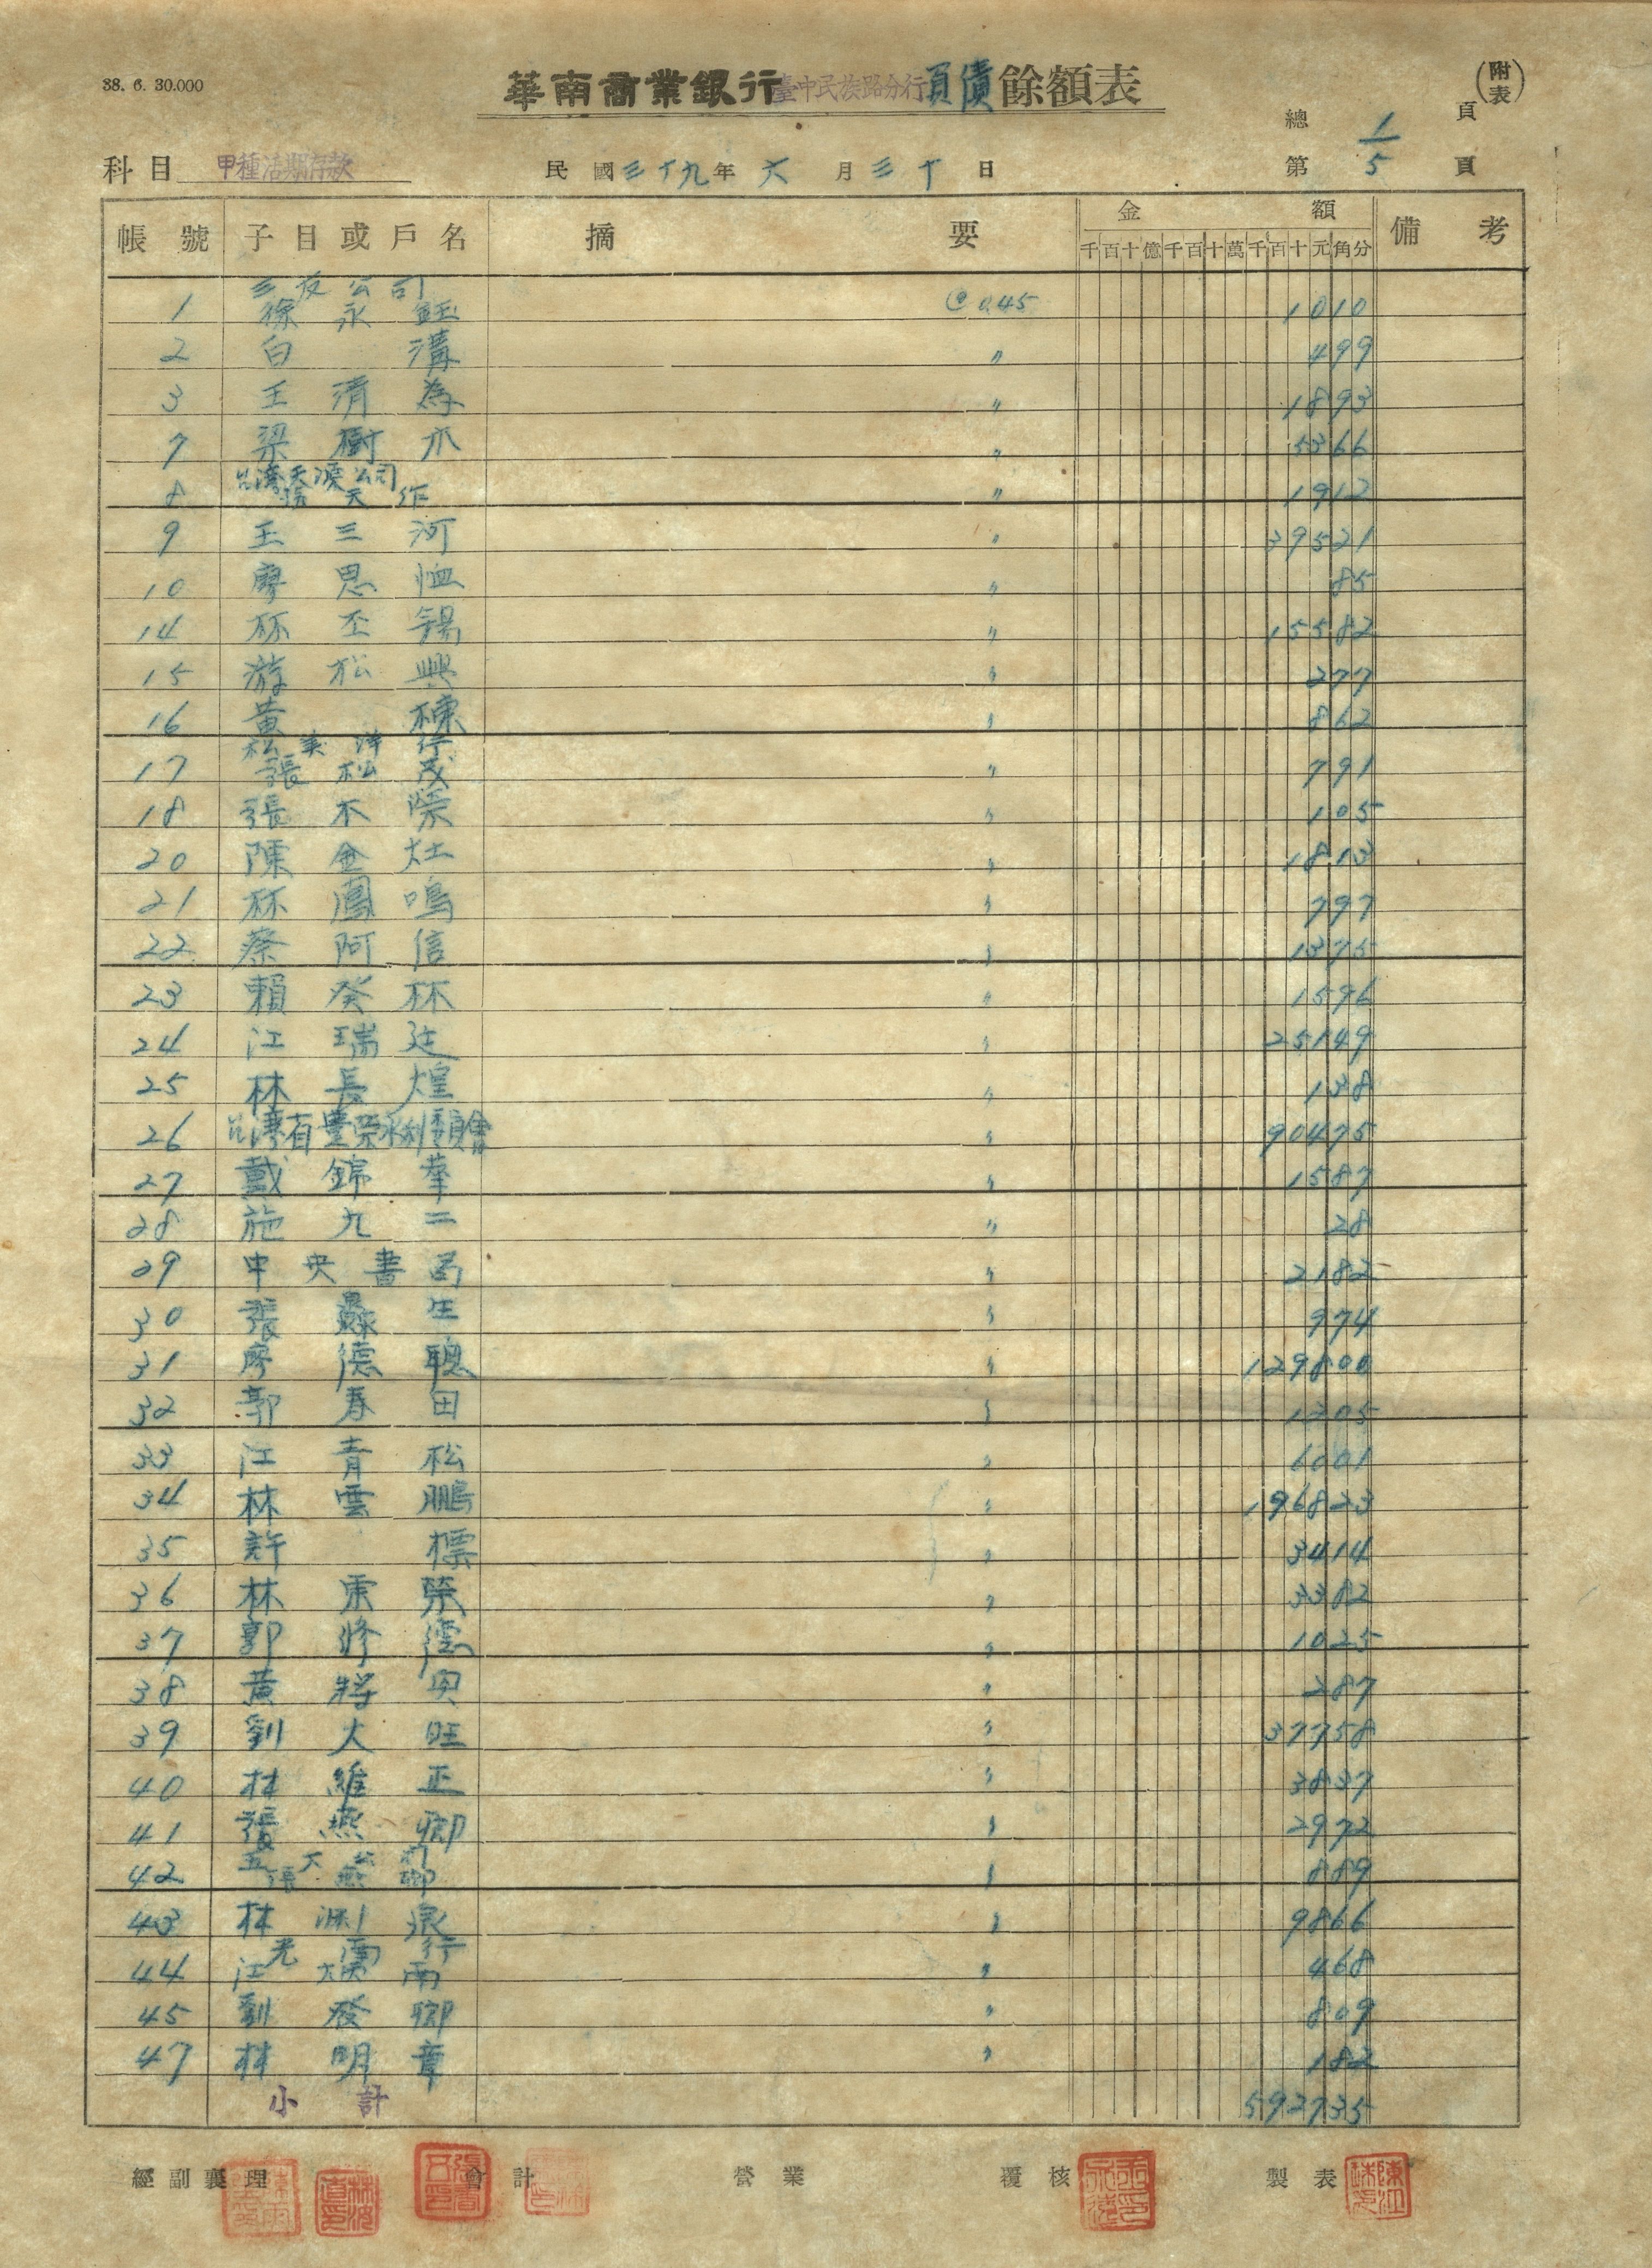 38. 6. 30.000
華南商業銀行臺中民族路分行負債餘額表 (附表)
總 1 頁
科目 甲種活期存款 民國三十九年六月三十日 第 5 頁
帳號 子目或戶名 摘要 金額 備考
千百十億千百十萬千百十元角分
三友公司
1 徐永鈺 @0.45 1010
2 白溝 〃 499
3 王清為 〃 1893
7 梁樹 〃 5366
8 張天作 〃 1912
9 王三河 〃 39521
10 廖思恤 〃 85
14 林丕錫 〃 15582
15 游松興 〃 277
16 黃棟 〃 862
松美洋行
17 張松茂 〃 791
18 張木榮 〃 105
20 陳金灶 〃 1813
21 林鳳鳴 〃 797
22 蔡阿信 〃 1375
23 賴癸林 〃 1596
24 江瑞廷 〃 25149
25 林長煌 〃 138
26 台灣省豐榮水利委員會 〃 90475
27 戴錦華 〃 1587
28 施九二 〃 28
29 中央書局 〃 2182
30 張蘇生 〃 974
31 廖德聰 〃 129800
32 郭春田 〃 1205
33 江青松 〃 6001
34 林雲鵬 〃 196823
35 許標 〃 3414
36 林東榮 〃 3382
37 郭修德 〃 1025
38 黃將 〃 287
39 劉大旺 〃 37758
40 林維正 〃 3837
41 張燕卿 〃 2972
五大公司
42 張燕卿 〃 889
43 林淵泉 〃 9866
44 江雨 〃 468
45 劉發卿 〃 809
47 林明章 〃 182
小計 592735
經副襄理 會計 營業 覆核 製表